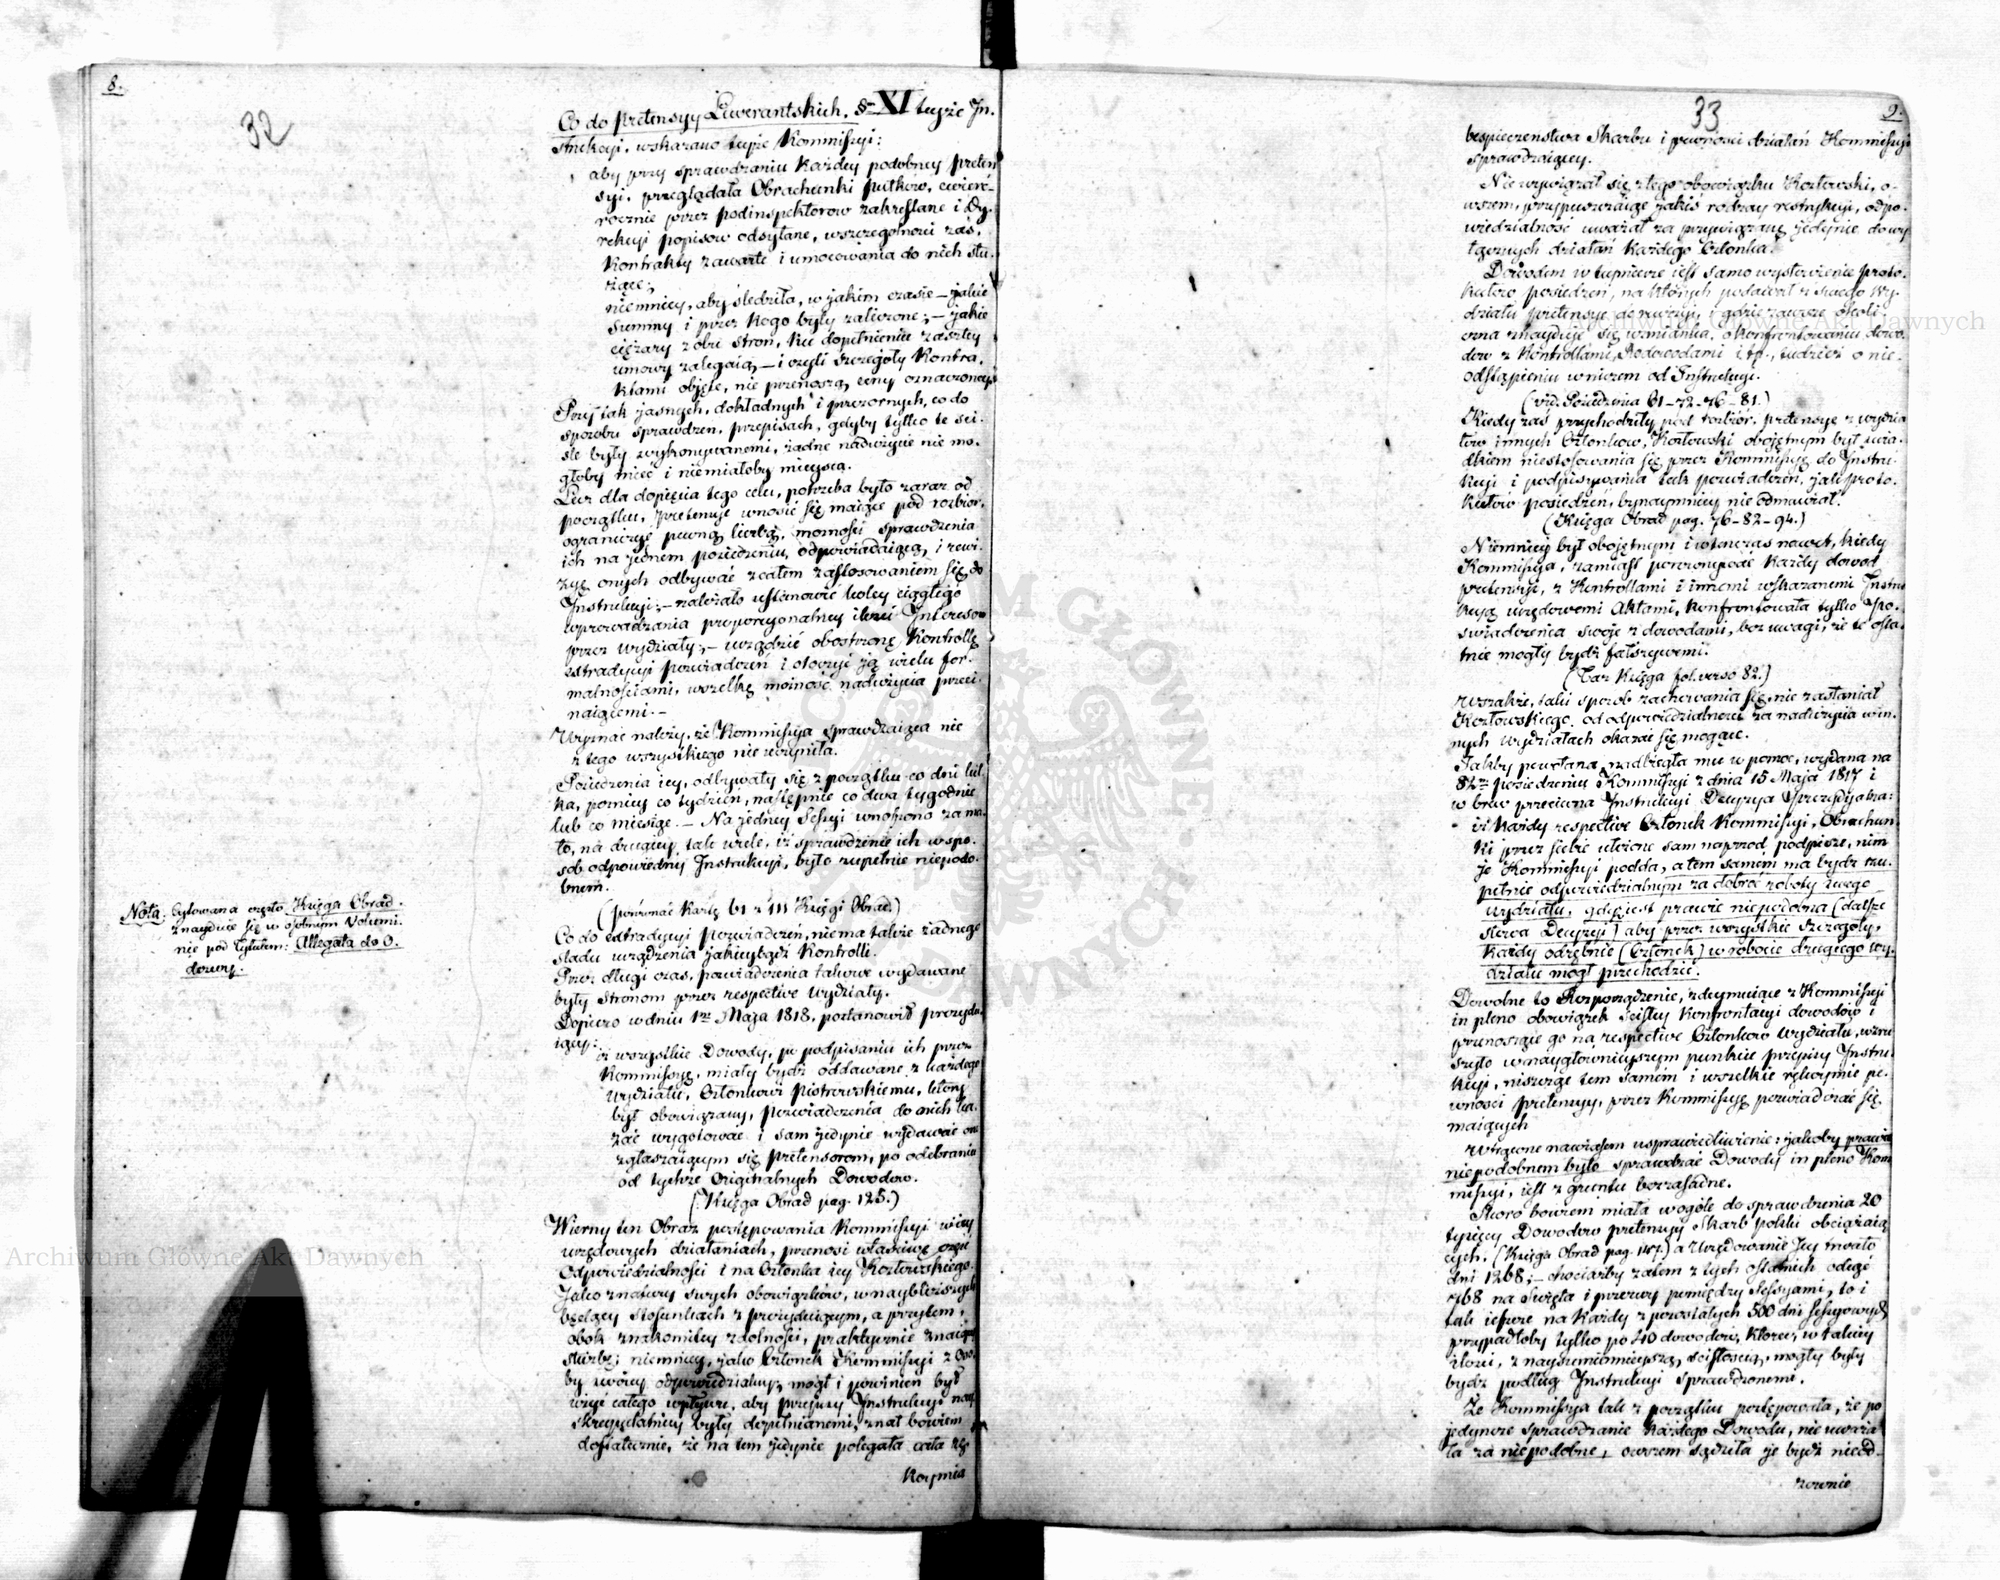 8.
32
Co do pretensyy Liwerantskich. §m XI teyże In.
strukcyi, wskazano teyże Kommissyi:
aby przy sprawdzaniu każdey podobney preten
syi, przeglądała Obrachunki pułków, ćwierć-
rocznie przez podinspektorow zakreślane i Dy.
rekcyi popisow odsyłane, wszczególności zaś,
Kontrakty zawarte i umocowania do nich słu.
żące;
niemniey, aby śledziła, w jakim czasie – jakie
Summy i przez kogo były zaliczone; – jakie
ciężary z obu stron, ku dopełnieniu zaszłey
umowy zalegaią, – i czyli szczegóły Kontra.
ktami objęte, nie przenoszą ceny oznaczoney.
Przy tak jasnych, dokładnych i przezornych, co do
sposobu sprawdzeń, przepisach, gdyby tylko te ści.
śle były wykonywanemi, żadne nadużycie nie mo.
głoby mieć i niemiałoby mieysca.
Lecz dla dopięcia tego celu, potrzeba było zaraz od
początku, pretensye wnosić się maiące pod rozbiór,
ograniczyć pewną liczbą, możności sprawdzenia
ich na jednem posiedzeniu odpowiadaiącą, i rewi.
zyę onych odbywać z całem zastosowaniem się do
Instrukcyi; – należało ustanowić koley ciągłego
wprowadzania proporcyonalney ilości Interesow
przez wydziały; – urządzić obostrzoną Kontrollę
extradycyi poświadczeń i otoczyć ją wielu for.
malnościami, wszelką możność nadużycia przeci.
naiącemi. –
Wyznać należy, że Kommissya sprawdzaiąca nic
z tego wszystkiego nie uczyniła.
Posiedzenia iey, odbywały się z początku co dni kil.
ka, poźniey co tydzień, następnie co dwa tygodnie
lub co miesiąc. – Na jedney Sessyi wnoszono za ma.
ło, na drugiey tak wiele, iż sprawdzenie ich w spo.
sob odpowiedny Instrukcyi, było zupełnie niepodo.
bnem.
(porównać kartę 61 z 111 Księgi Obrad.)
Nota: cytowana często Księga Obrad.
znayduie się w osobnym Volumi.
nie pod tytułem: Allegata do O.
brony.
Co do extradycyi poświadczeń, niema także żadnego
śladu urządzenia jakieybądź Kontrolli.
Przez długi czas, poświadczenia takowe wydawane
były Stronom przez respective Wydziały.
Dopiero w dniu 1m Maja 1818. postanowił prezydu.
iący:
iż wszystkie Dowody, po podpisaniu ich przez
Kommissyę, miały bydź oddawane z każdego
wydziału, Członkowi Piotrowskiemu, który
był obowiązany, poświadczenia do nich ka.
zać wygotować i sam jedynie wydawać one
zgłaszaiącym się pretensorom, po odebraniu
od tychże Originalnych Dowodow.
(Księga Obrad pag. 125.)
Wierny ten Obraz postępowania Kommissyi w iey
urzędowych działaniach, przenosi właściwą część
Odpowiedzialności i na Członka iey Kozłowskiego.
Jako z natury swych obowiązków, w naybliższych
będący stosunkach z prezyduiącym, a przytem,
obok znakomitey zdolności, praktycznie znaiąc
służbę; niemniey, jako Członek Kommissyi z Oso.
by swoiey odpowiedzialny, mógł i powinien był
użyć całego wpływu, aby przepisy Instrukcyi nay
skrupulatniey były dopełnianemi, znał bowiem
dostatecznie, że na tem jedynie polegała cała rę
koymia
33
9.
bespieczeństwa Skarbu i pewności działań Kommissyi
sprawdzaiącey.
Nie wywiązał się z tego obowiązku Kozłowski, o-
wszem, przypuszczaiąc jakiś rodzay restrykcyi, odpo.
wiedzialność uważał za przywiązaną jedynie do wy
łącznych działań każdego Członka.
Dowodem w tey mierze iest samo wystawienie proto.
kułów posiedzeń, na których podawał z swego Wy-
działu pretensye do rewizyi, i gdzie zawsze okoli
czna znayduje się wzmianka, o konfrontowaniu dowo.
dów z Kontrollami, Rodowodami i t.p., tudzież o nie.
odstąpieniu w niczem od Instrukcyi.
(vid. Posiedzenia 61-72-76-81.)
Kiedy zaś przychodziły pod rozbiór, pretensye z wydzia
łów innych Członków, Kozłowski obojętnym był świa.
dkiem niestosowania się przez Kommissyę do Instru.
kcyi i podpisywania tak poświadczeń, jako proto.
kułów posiedzeń, bynaymniey nie odmawiał.
(Księga Obrad pag. 76-82-94.)
Niemniey był obojętnym i wtenczas nawet, kiedy
Kommissya, zamiast porównywać każdy dowód
pretensyi, z Kontrollami i innemi wskazanemi Instru
kcyą urzędowemi Aktami, konfrontowała tylko Po.
świadczenia swoje z dowodami, bez uwagi, że te osta.
tnie mogły bydź fałszywemi.
(Taż Księga fol. verso 82.)
Wszakże, taki sposób zachowania się, nie zasłaniał
Kozłowskiego od odpowiedzialności za nadużycia w in.
nych wydziałach okazać się mogące.
Jakby powołana, nadbiegła mu w pomoc, wydana na
82m posiedzeniu Kommissyi z dnia 15 Maja 1817 i
w brew przeciwna Instrukcyi Decyzya Prezydująca:
iż każdy respective Członek Kommissyi, Obrachun
ki przez siebie ułożone sam naprzód podpisze, nim
je Kommissyi podda, a tem samem ma bydź zu.
pełnie odpowiedzialnym za dobroć roboty swego
wydziału, gdyż jest prawie niepodobna (dalsze
słowa Decyzyi) aby przez wszystkie szczegóły,
każdy odrębnie (Członek) w robocie drugiego wy.
działu mógł przechodzić.
Dowolne to Rozporządzenie, zdeymuiące z Kommissyi
in pleno obowiązek ścisłey konfrontacyi dowodów i
przenosząc go na respective Członków Wydziału, wzru
szyło w naygłównieyszym punkcie przepisy Instru.
kcyi, niszcząc tem samem i wszelkie rękoymie pe.
wności pretensyy, przez Kommissyę poświadczać się
maiących
Wtrącone nawiasem usprawiedliwienie: jakoby prawie
niepodobnem było sprawdzać Dowody in pleno Kom
missyi, iest z gruntu bezzasadne.
Skoro bowiem miała wogóle do sprawdzenia 20
tysięcy Dowodow pretensyi Skarb polski obciążaią
cych, (Księga Obrad pag. 147.) a Urzędowanie Jey trwało
dni 1268; – chociażby zatem z tych ostatnich odiąć
768 na Święta i przerwy pomiędzy Sessyami, to i
tak ieszcze na każdy z pozostałych 500 dni sessyowych,
przypadłoby tylko po 40 dowodów, które, w takiey
ilości, z naysumiennieyszą ścisłością, mogły były
bydź podług Instrukcyi Sprawdzonemi.
Że Kommissya tak z początku postępowała, że po
jedyncze sprawdzanie każdego Dowodu, nie uważa
ła za niepodobne, owszem sądziła je bydź nieod-
zownie